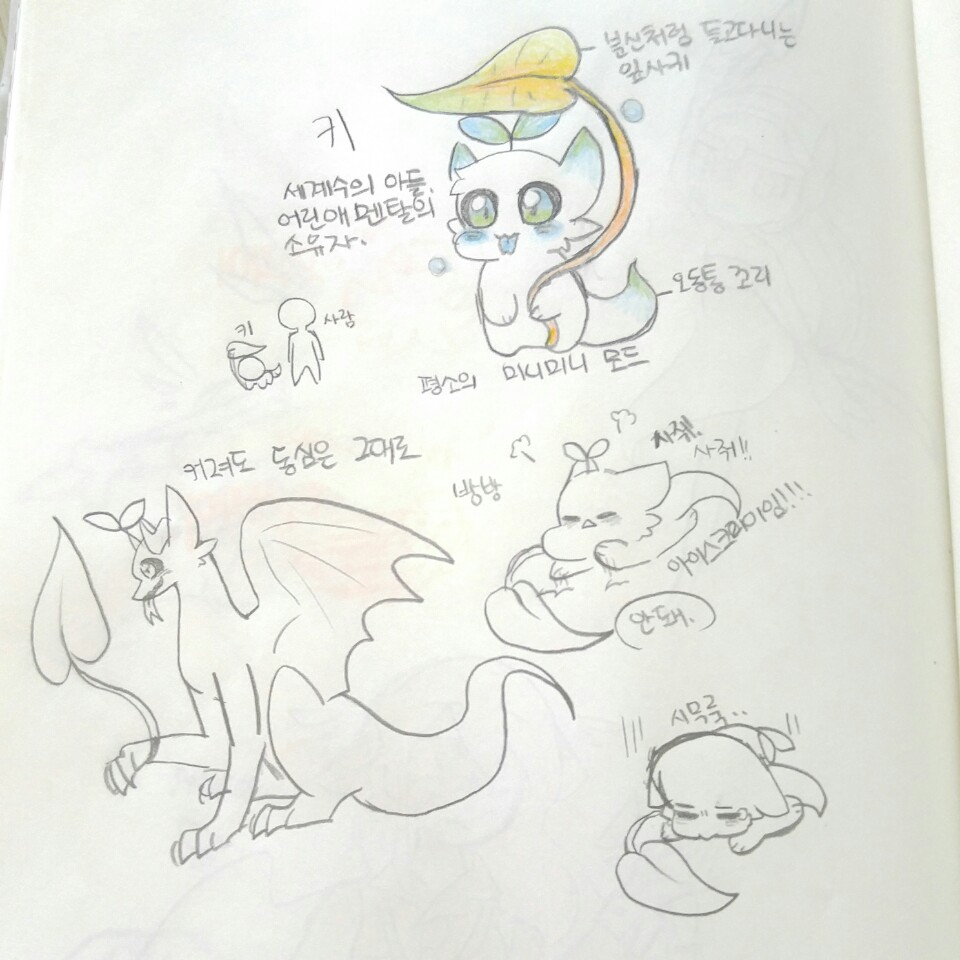 분신처럼 들고다니는
잎사귀
키
세계수의 아들.
어린애 멘탈의
소유자.
오동통 꼬리
키
사람
평소의 미니미니 모드
커져도 동심은 그대로
방방
사줘!!
사줘!!
아이스크라이임!!!
안돼.
시무룩..